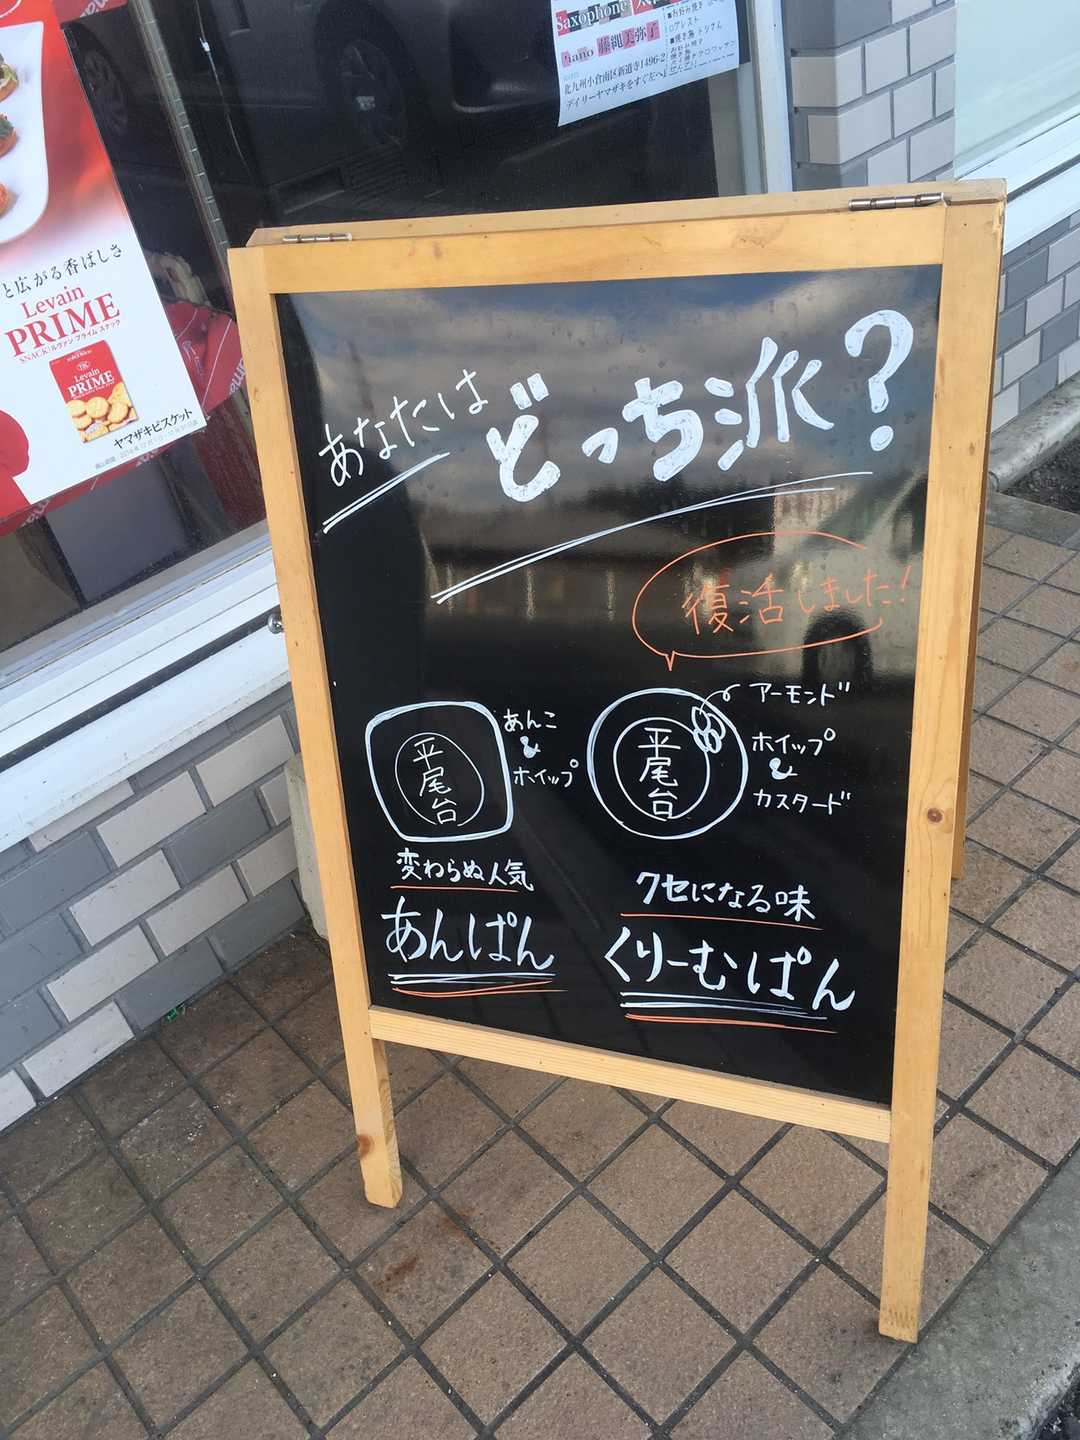 Saxophone
Piano 藤縄美弥子
北九州小倉南区新道寺1496-2
デイリーヤマザキをすぐ左へ
と広がる香ばしさ
Levain
PRIME
SNACK ルヴァン プライム スナック
Levain
PRIME
ヤマザキビスケット
あなたは
どっち派?
復活しました!
平尾台
あんこ
&
ホイップ
変わらぬ人気
あんぱん
平尾台
アーモンド
ホイップ
&
カスタード
クセになる味
くりーむぱん